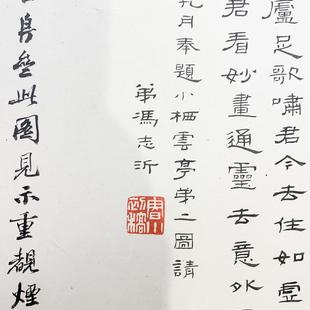 廬足歌嘯君今去住如虛
君看妙畫通靈去意外
九月奉題小栖雲亭第二圖請
弟馮志沂
此圖見示重覩煙